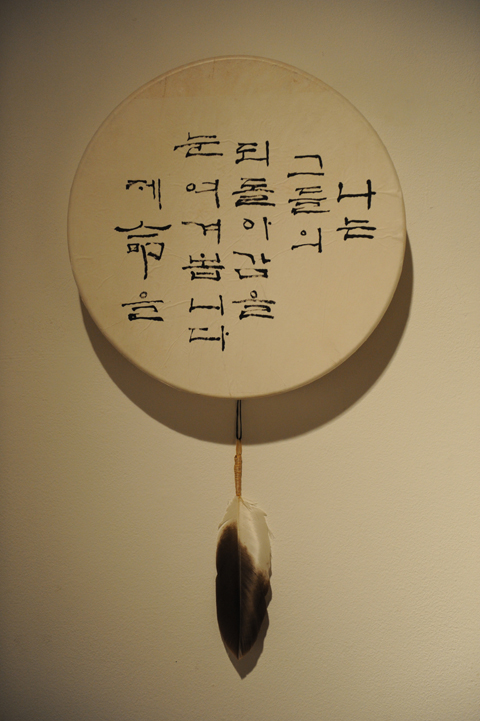 나는
그들의
되돌아감을
눈여겨봅니다
제